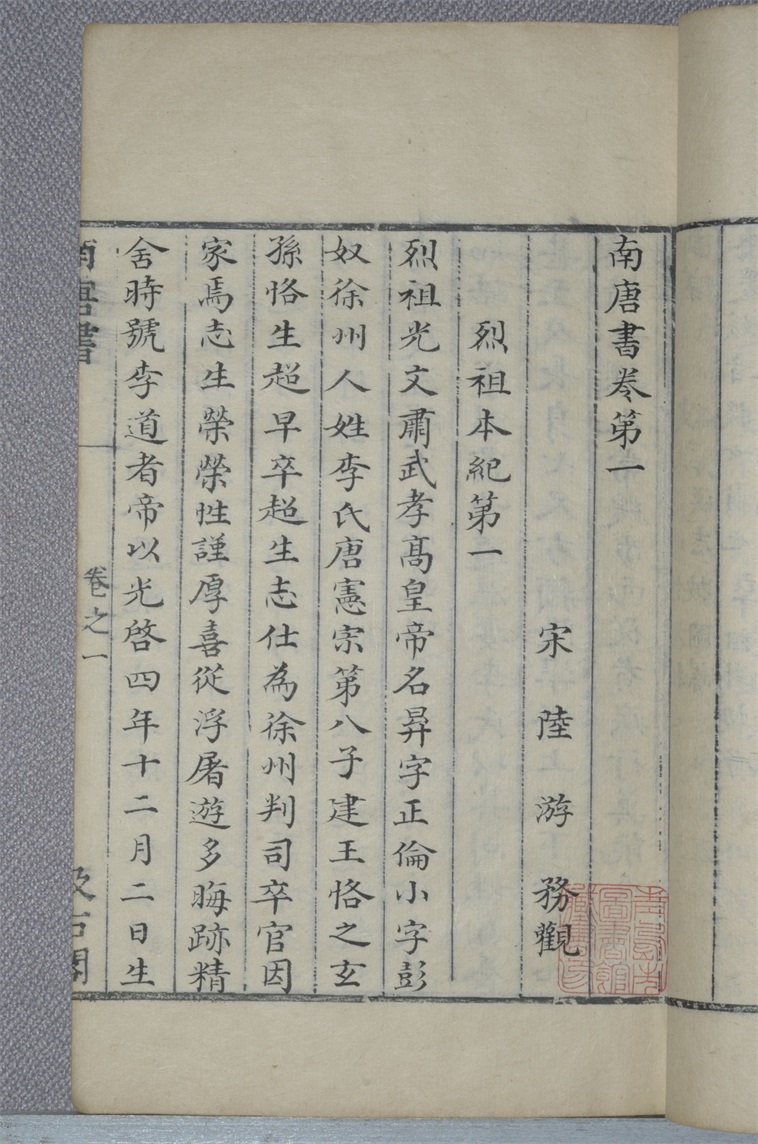 南唐書卷第一
宋陸游務觀
烈祖本紀第一
烈祖光文肅武孝高皇帝名昪字正倫小字彭
奴徐州人姓李氏唐憲宗第八子建王恪之玄
孫恪生超早卒超生志仕為徐州判司卒官因
家焉志生榮榮性謹厚喜從浮屠遊多晦跡精
舍時號李道者帝以光啓四年十二月二日生
南唐書
卷之一
汲古閣